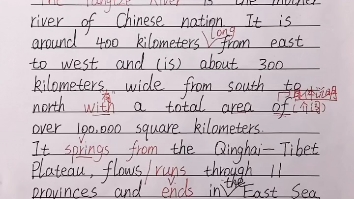 The Yangtze River is the mother
river of Chinese nation It is
long
around 400 kilometers from east
to west and (is) about 300
kilometers wide from south to
north with a total area of
over 100,000 square kilometers.
It springs from the Qinghai-Tibet
Plateau, flows/runs through 11
the
provinces and ends in East Sea